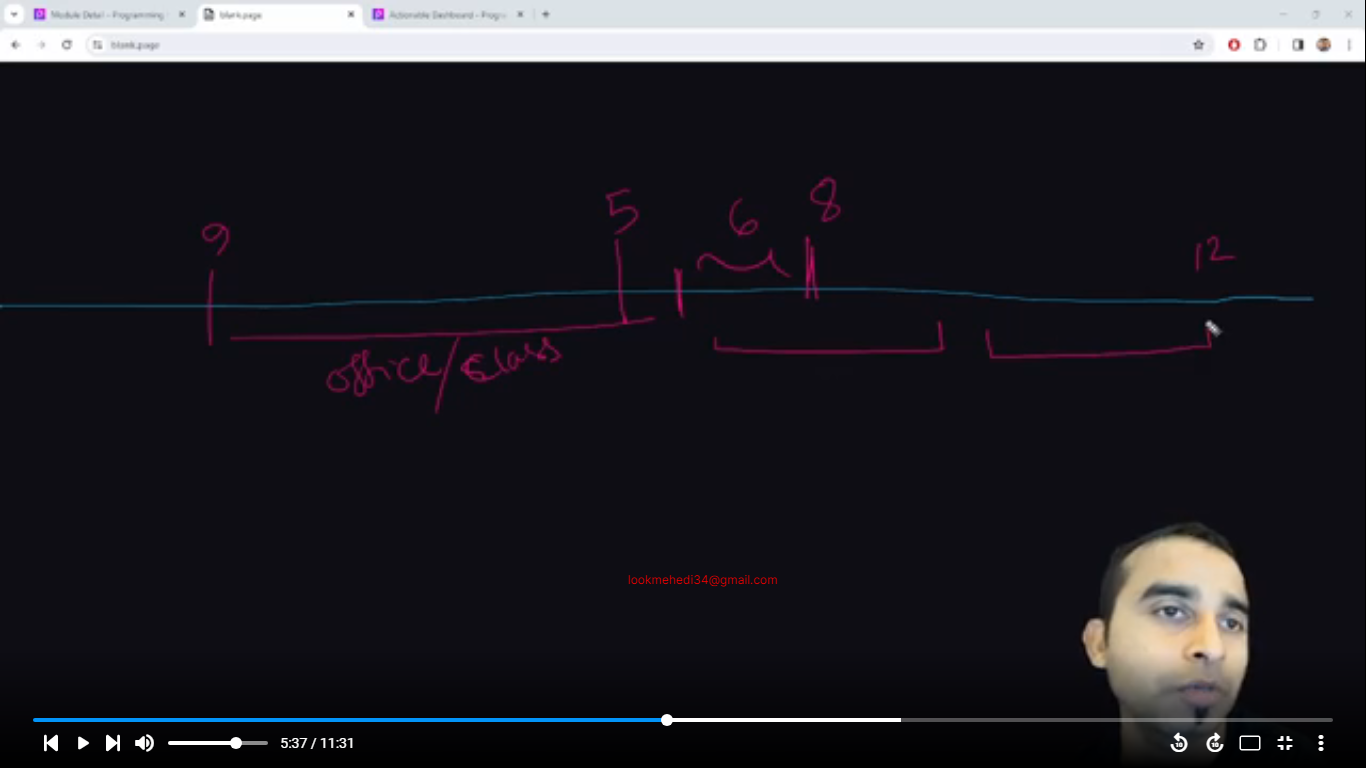 Module Detail - Programming
blank.page
Actionable Dashboard - Progra
blank.page
9
5
6
8
12
office/class
lookmehedi34@gmail.com
5:37 / 11:31
10
10